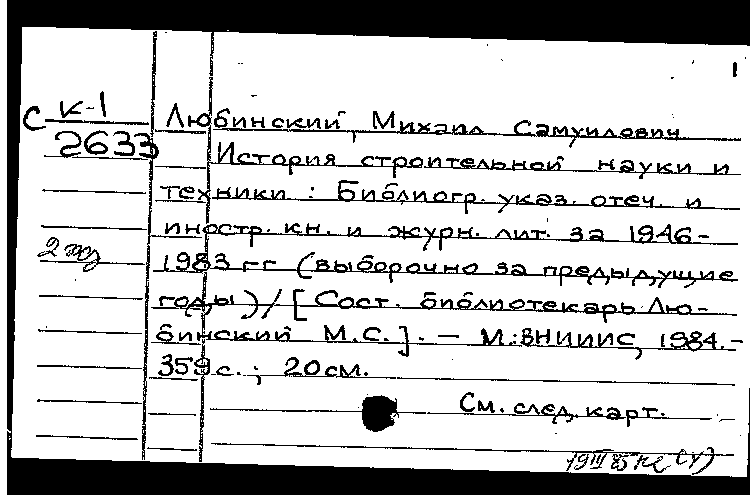 1
С К-1
2633
Любинский, Михаил Самуилович
История строительной науки и
техники : Библиогр. указ. отеч. и
иностр. кн. и журн. лит. за 1946-
2 экз
1983 гг (выборочно за предыдущие
годы) / [Сост. библиотекарь Лю-
бинский М.С.]. – М.: ВНИИИС, 1984.-
359 с. ; 20 см.
См. след. карт.
19 III 85